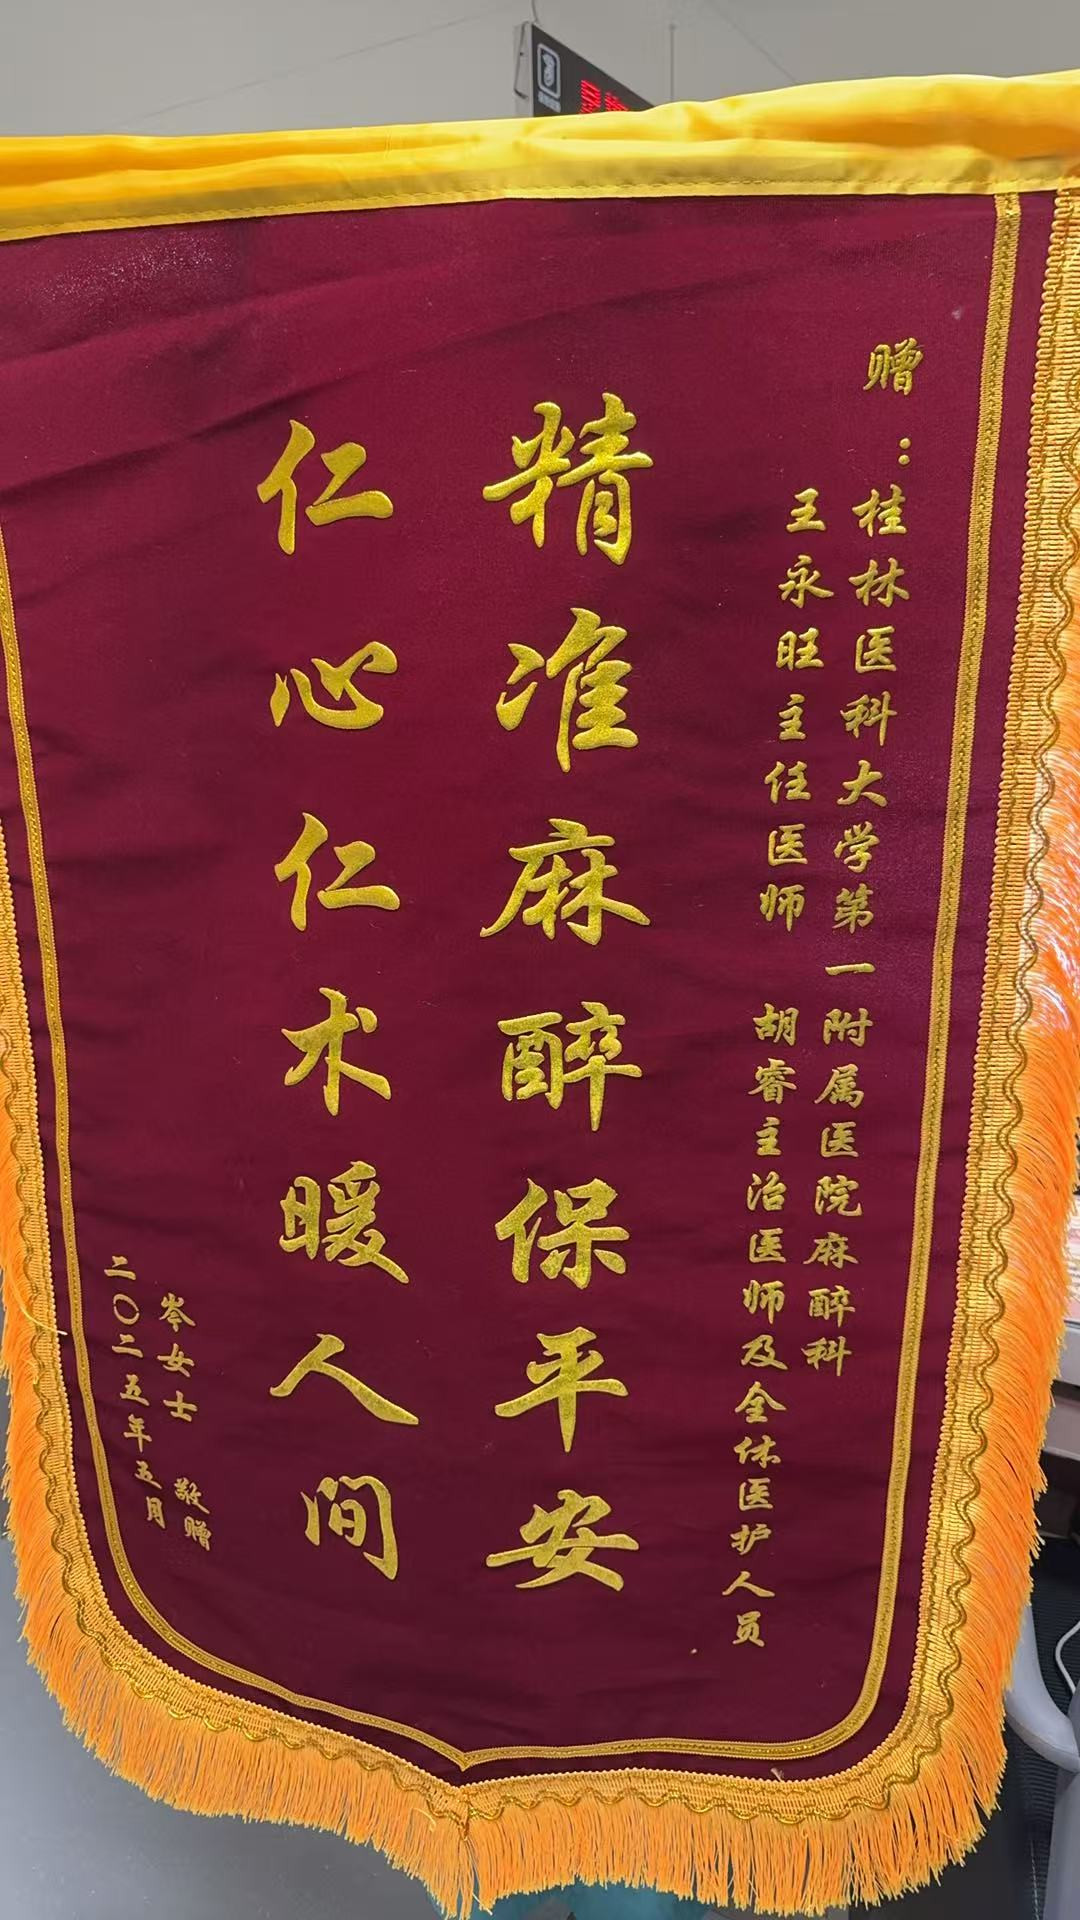 赠：桂林医科大学第一附属医院麻醉科
王永旺主任医师 胡睿主治医师及全体医护人员
精准麻醉保平安
仁心仁术暖人间
岑女士 敬赠
二〇二五年五月